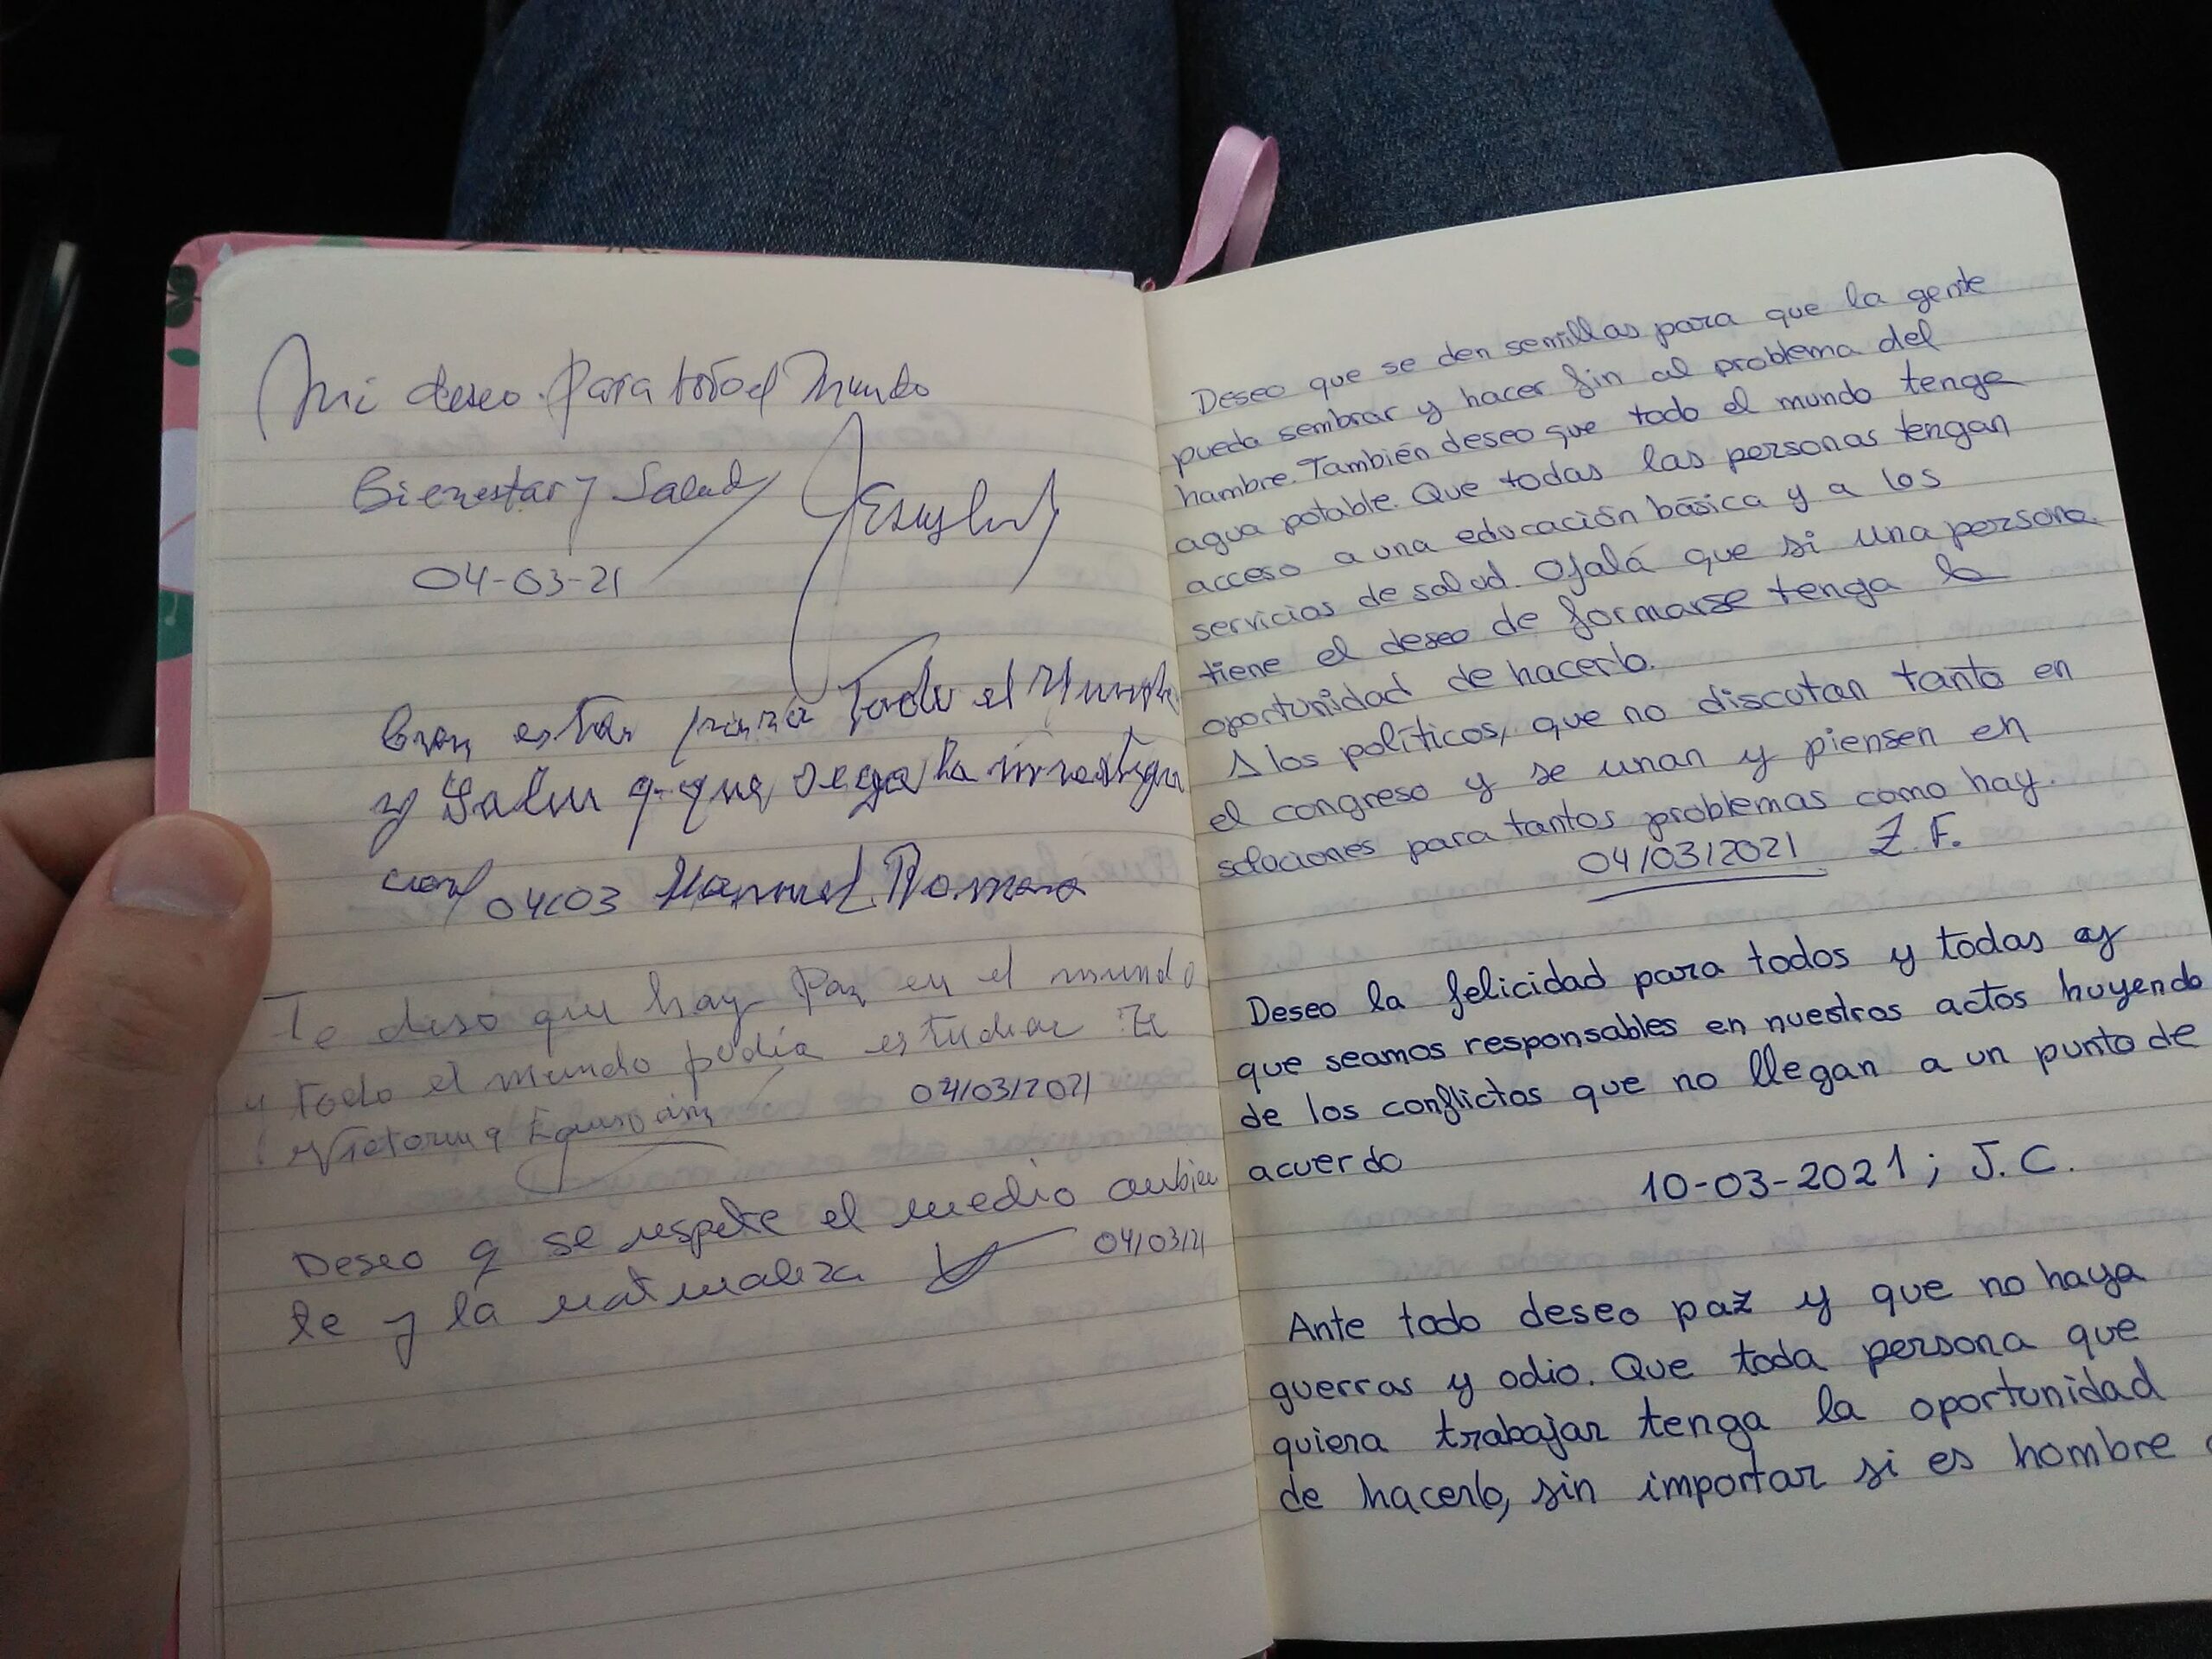 Mi deseo para todo el Mundo
Bienestar y Salud
04-03-21
estar para todo el
y que la
04/03 Manuel Romero
Te deso que hay Paz en el mundo
y todo el mundo podia estudiar
04/03/2021
Deseo q se respete el medio ambien
te y la naturaleza 04/03/21
Deseo que se den semillas para que la gente
pueda sembrar y hacer fin al problema del
hambre. También deseo que todo el mundo tenga
agua potable. Que todas las personas tengan
acceso a una educación básica y a los
servicios de salud. Ojalá que si una persona
tiene el deseo de formarse tenga la
oportunidad de hacerlo.
A los políticos, que no discutan tanto en
el congreso y se unan y piensen en
soluciones para tantos problemas como hay.
04/03/2021 Z.F.
Deseo la felicidad para todos y todas y
que seamos responsables en nuestros actos huyendo
de los conflictos que no llegan a un punto de
acuerdo
10-03-2021; J.C.
Ante todo deseo paz y que no haya
guerras y odio. Que toda persona que
quiera trabajar tenga la oportunidad
de hacerlo, sin importar si es hombre